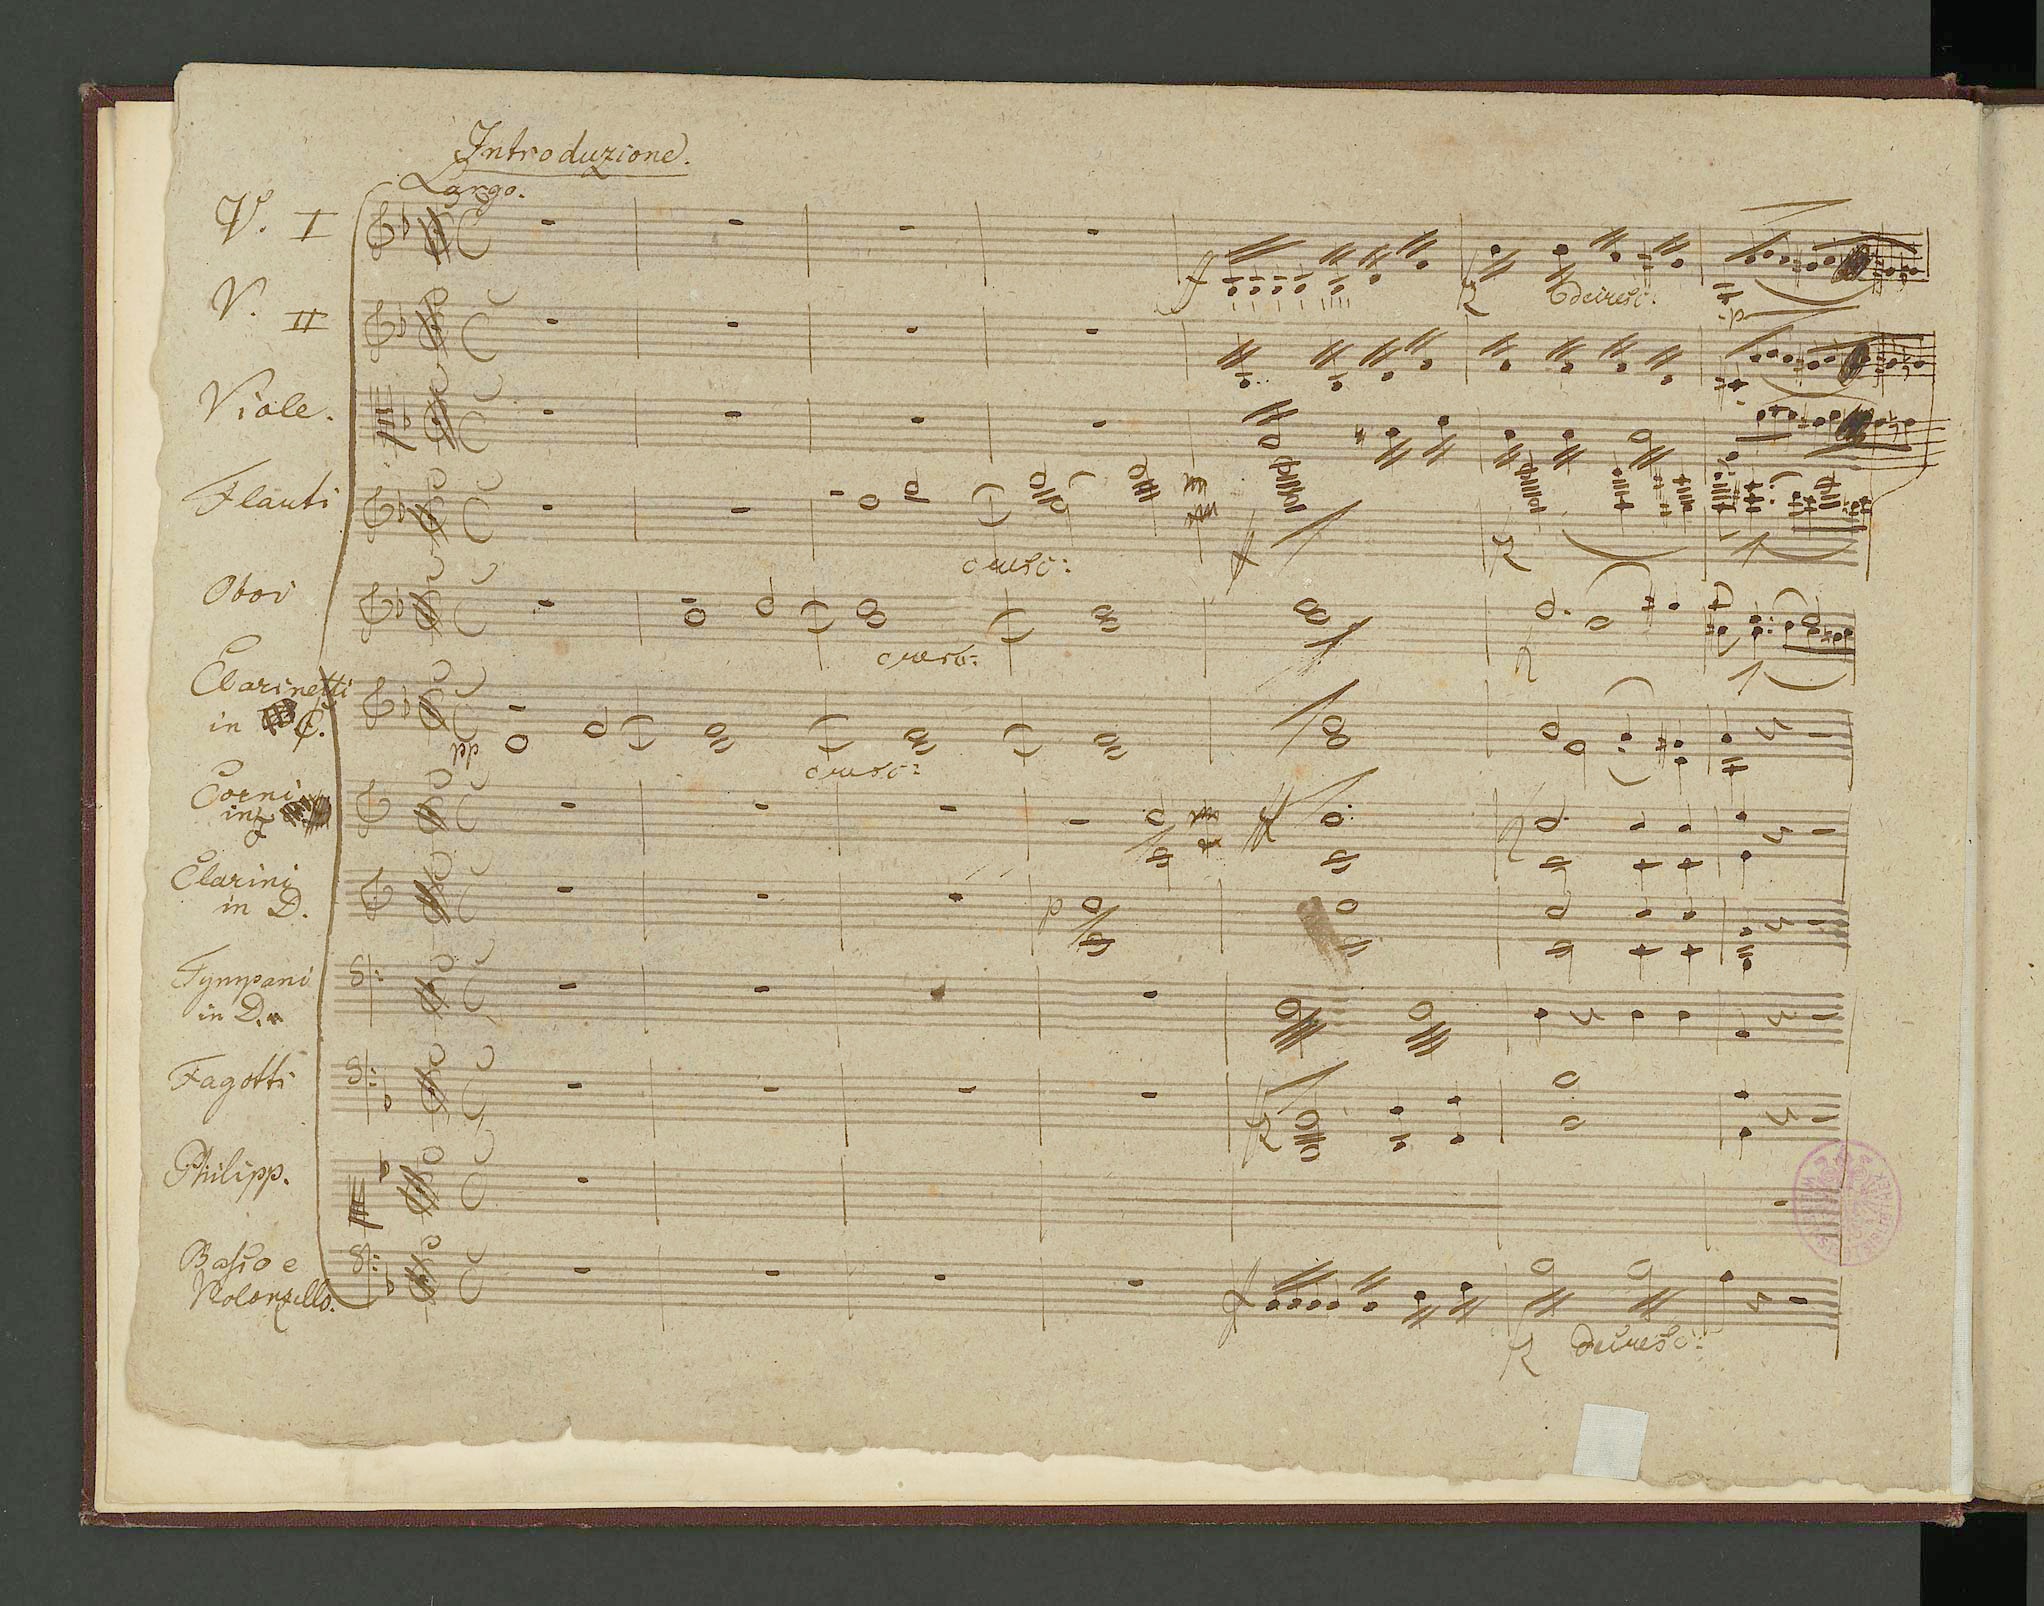 Introduzione.
Largo.
V. I
V. II
decresc:
Viole.
Flauti
cresc:
Oboi
cresc:
Clarinetti
in C.
cresc:
Corni
in
Clarini
in D.
Tympani
in D.
Fagotti
Philipp.
Basso e
Violoncello.
decresc: